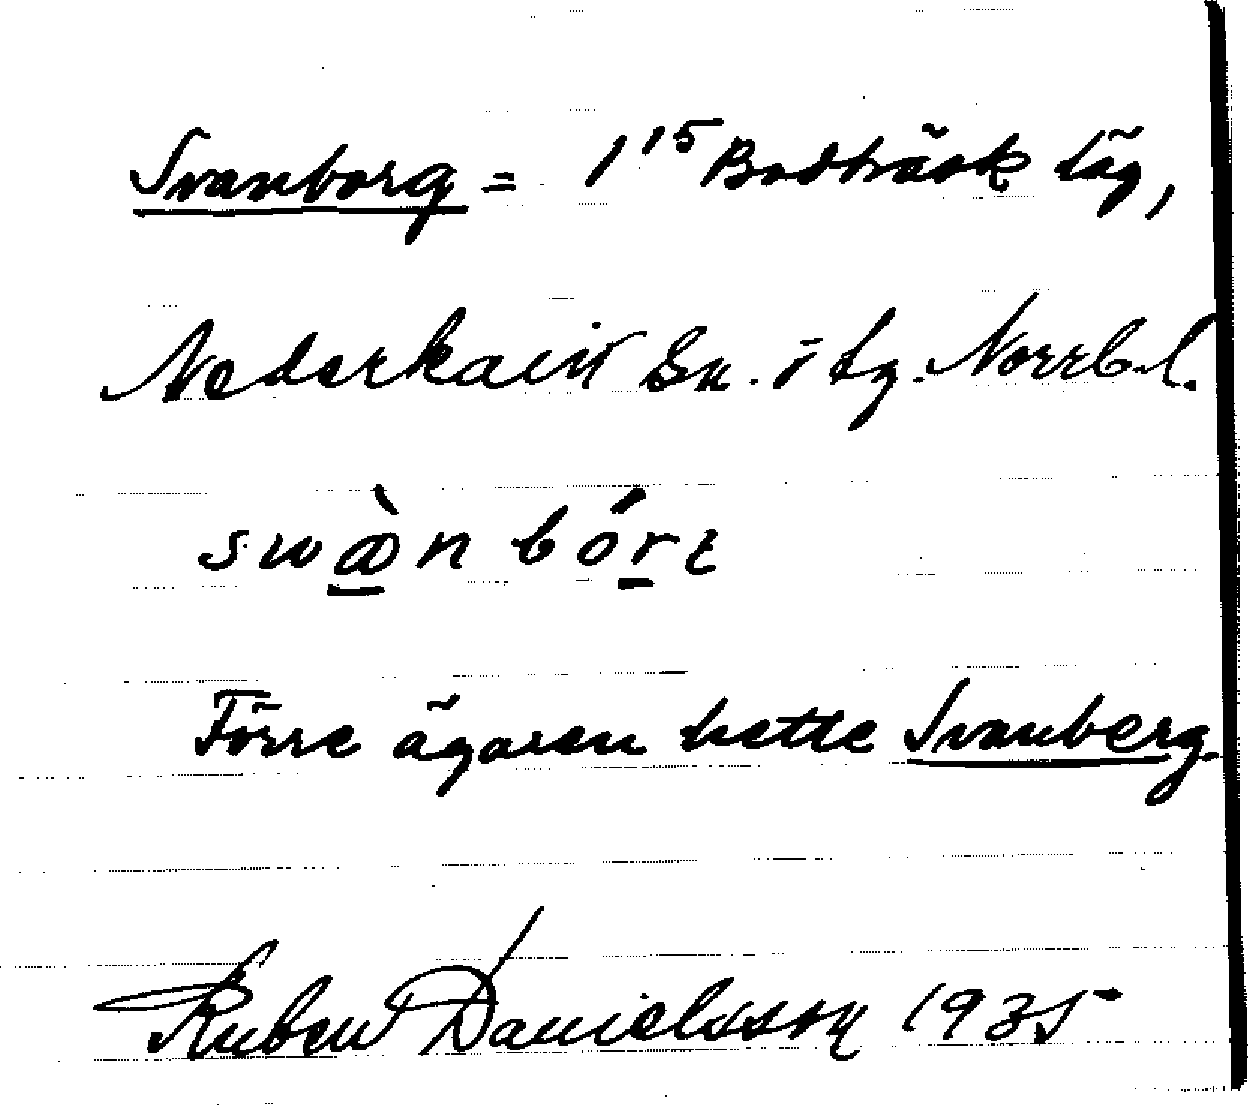 Svanborg = 1¹⁵ Bodträsk läg,
Nederkalix Sn. o tg. Norrb. l.
swa̠̍n bór̠t
Förre ägaren hette Svanberg.
Ruben Danielsson 1935